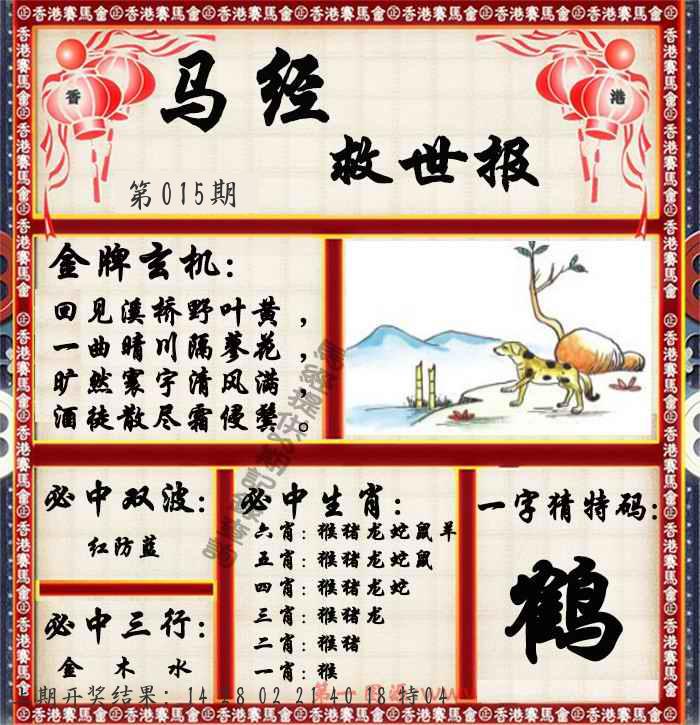 香港賽馬會
香 港
马经
救世报
第015期
金牌玄机：
回见溪桥野叶黄，
一曲晴川隔蓼花，
旷然寰宇清风满，
酒徒散尽霜侵鬓。
必中双波：
红防蓝
必中三行：
金 木 水
必中生肖：
六肖：猴猪龙蛇鼠羊
五肖：猴猪龙蛇鼠
四肖：猴猪龙蛇
三肖：猴猪龙
二肖：猴猪
一肖：猴
一字猜特码：
鹤
期开奖结果：14 8 02 21 40 18特04
第一图源